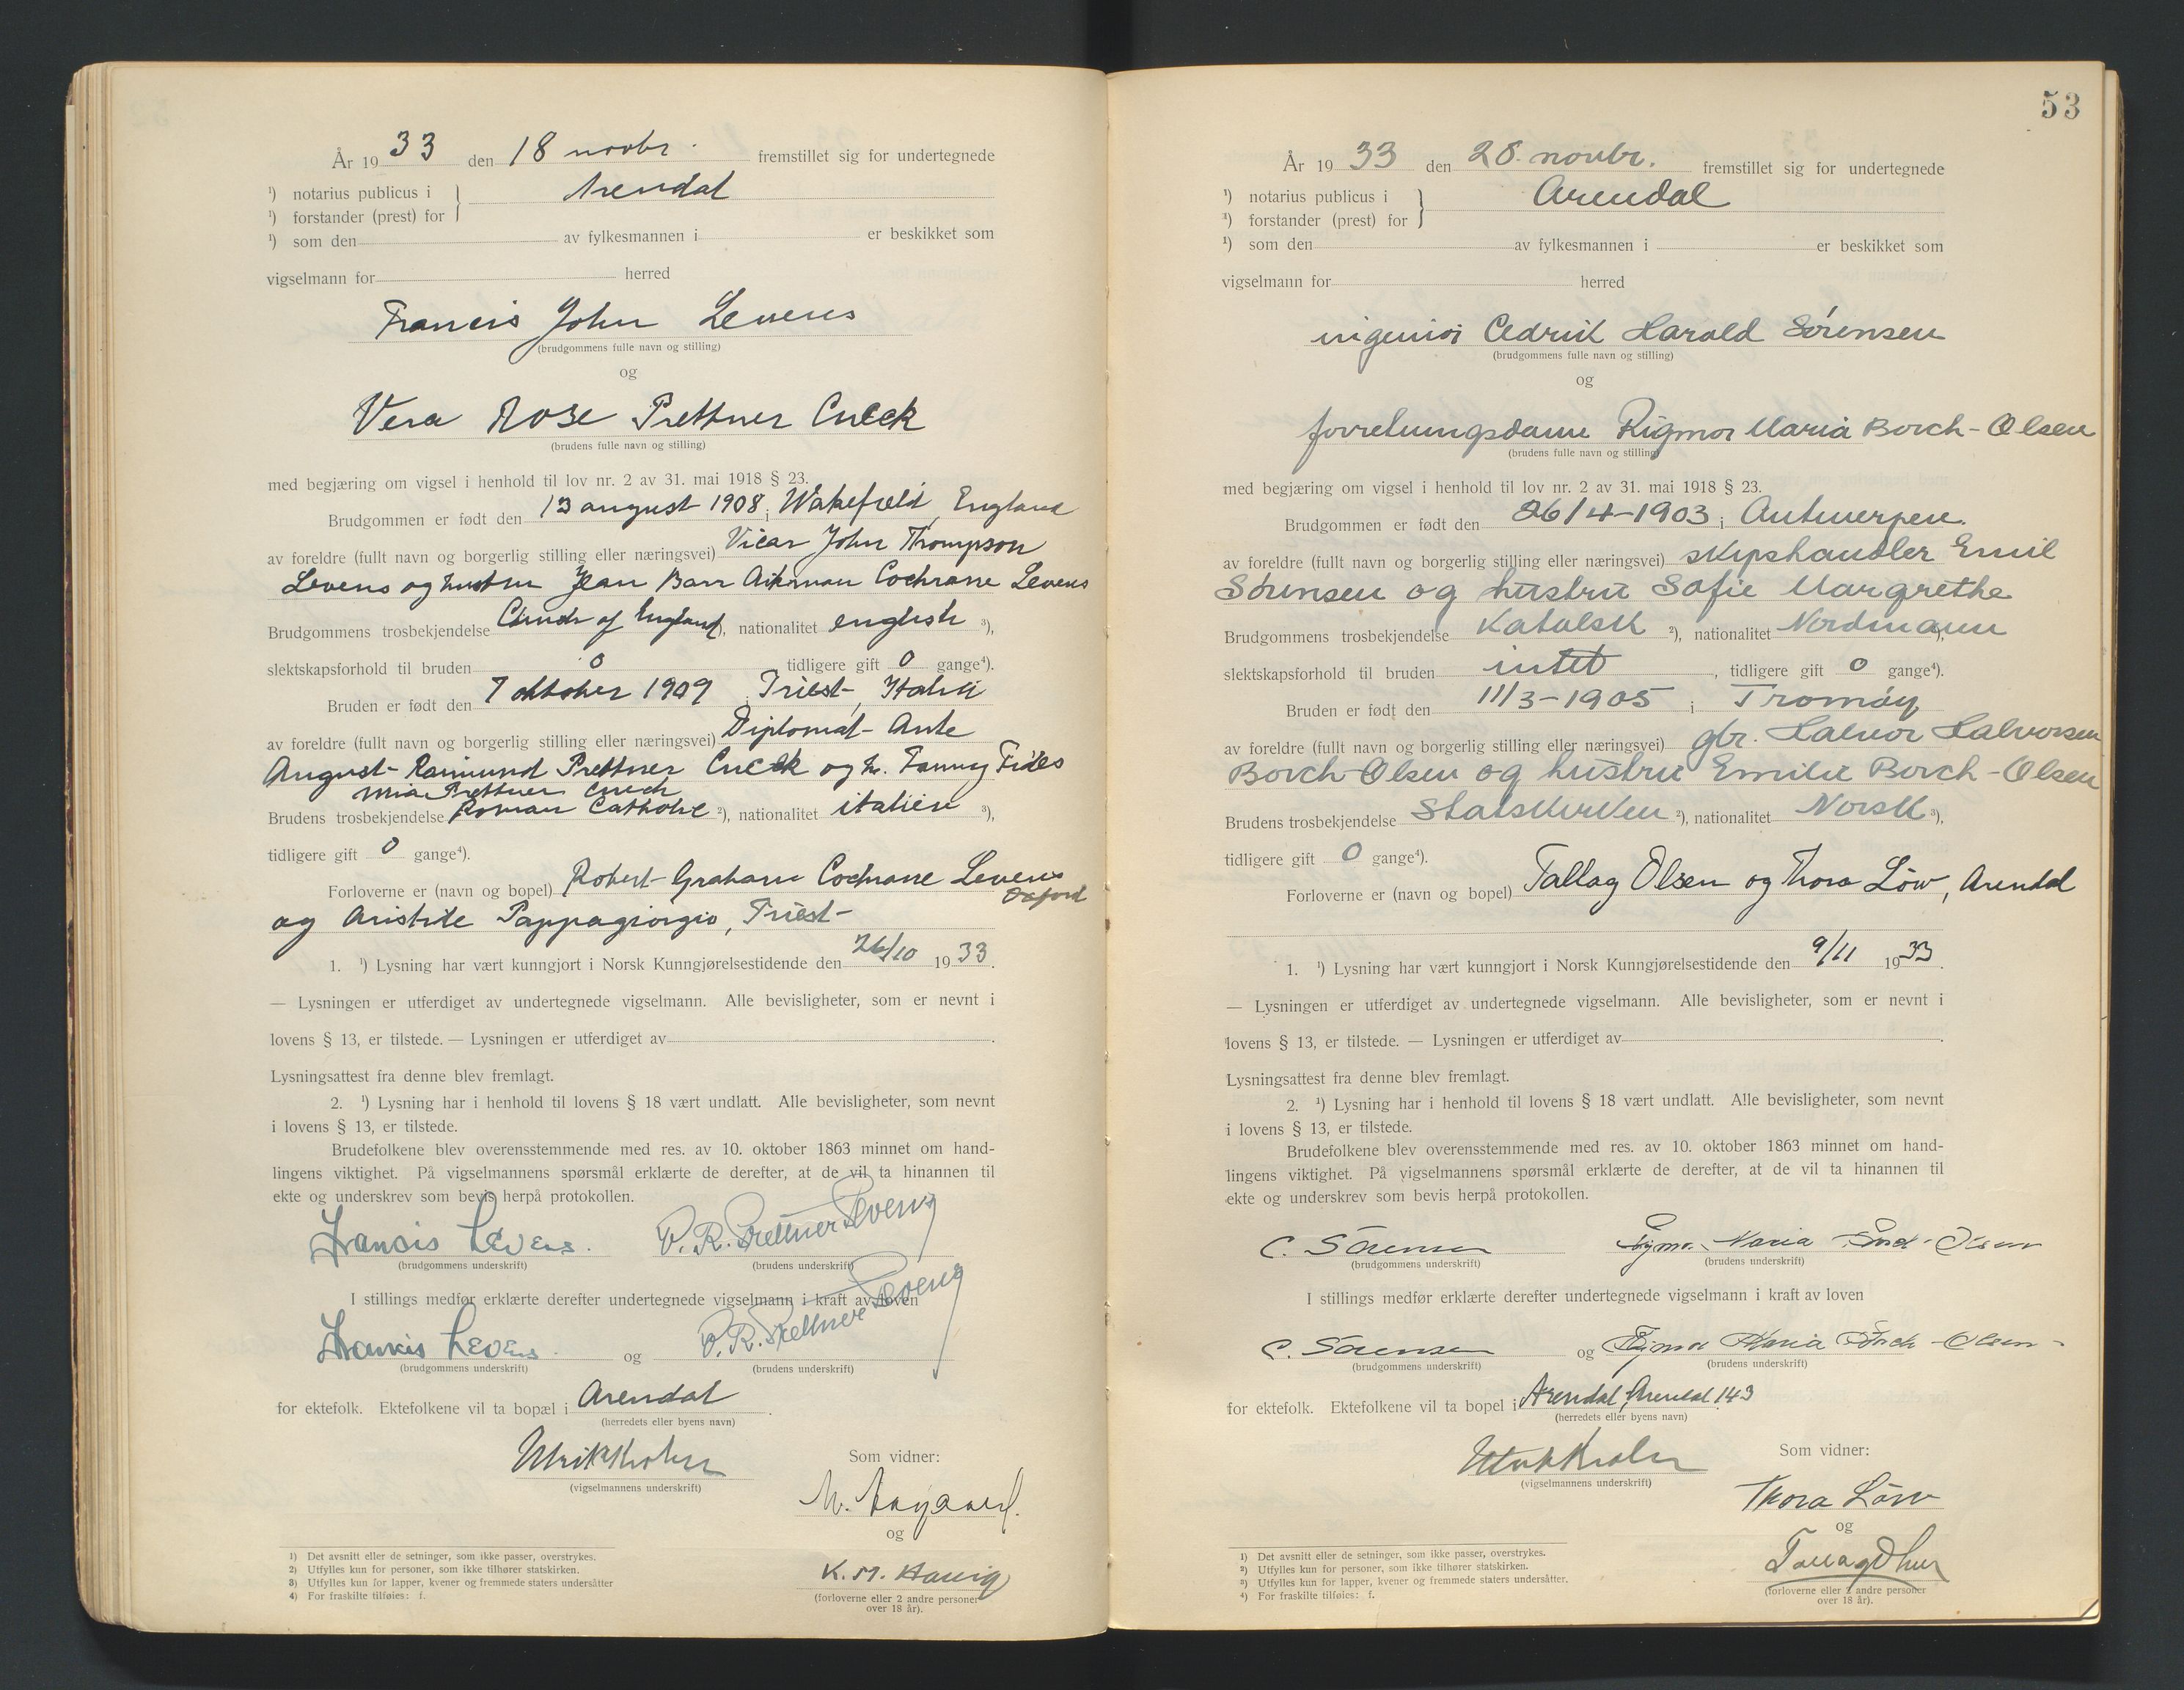 År 1933 den 18 novbr. fremstillet sig for undertegnede
¹) notarius publicus i } Arendal
¹) forstander (prest) for
¹) som den av fylkesmannen i er beskikket som
vigselmann for herred
Francis John Levens
(brudgommens fulle navn og stilling)
og
Vera Rose Prettner Cucek
(brudens fulle navn og stilling)
med begjæring om vigsel i henhold til lov nr. 2 av 31. mai 1918 § 23.
Brudgommen er født den 13 august 1908 i Wakefield, England
av foreldre (fullt navn og borgerlig stilling eller næringsvei) Vicar John Thompson
Levens og hustru Jean Barr Aikman Cochrane Levens
Brudgommens trosbekjendelse Church of England ²), nationalitet english ³),
slektskapsforhold til bruden 0 tidligere gift 0 gange⁴).
Bruden er født den 7 oktober 1909 i Triest, Italien
av foreldre (fullt navn og borgerlig stilling eller næringsvei) Diplomat Ante
August Raimund Prettner Cucek og h. Fanny Fides
Mia Prettner Cucek
Brudens trosbekjendelse Roman Catholic ²), nationalitet italien ³),
tidligere gift 0 gange⁴).
Forloverne er (navn og bopel) Robert Graham Cochrane Levens
Oxford
og Aristide Pappagiorgio, Triest
1. ¹) Lysning har vært kunngjort i Norsk Kunngjørelsestidende den 26/10 1933.
— Lysningen er utferdiget av undertegnede vigselmann. Alle bevisligheter, som er nevnt i
lovens § 13, er tilstede. — Lysningen er utferdiget av .
Lysningsattest fra denne blev fremlagt.
2. ¹) Lysning har i henhold til lovens § 18 vært undlatt. Alle bevisligheter, som nevnt
i lovens § 13, er tilstede.
Brudefolkene blev overensstemmende med res. av 10. oktober 1863 minnet om hand-
lingens viktighet. På vigselmannens spørsmål erklærte de derefter, at de vil ta hinannen til
ekte og underskrev som bevis herpå protokollen.
Francis Levens. V. R. Prettner Levens
(brudgommens underskrift) (brudens underskrift)
I stillings medfør erklærte derefter undertegnede vigselmann i kraft av loven
Francis Levens og V. R. Prettner Levens
(brudgommens underskrift) (brudens underskrift)
for ektefolk. Ektefolkene vil ta bopæl i Arendal .
(herredets eller byens navn)
(vigselmannens underskrift)
Som vidner:
M. Aagaard.
og
K. M. Hauig
(forloverne eller 2 andre personer
over 18 år).
1) Det avsnitt eller de setninger, som ikke passer, overstrykes.
2) Utfylles kun for personer, som ikke tilhører statskirken.
3) Utfylles kun for lapper, kvener og fremmede staters undersåtter
4) For fraskilte tilføies: f.
53
År 1933 den 28. novbr. fremstillet sig for undertegnede
¹) notarius publicus i } Arendal
¹) forstander (prest) for
¹) som den av fylkesmannen i er beskikket som
vigselmann for herred
ingeniør Cedrik Harald Sörensen
(brudgommens fulle navn og stilling)
og
forretningsdame Rigmor Maria Borch-Olsen
(brudens fulle navn og stilling)
med begjæring om vigsel i henhold til lov nr. 2 av 31. mai 1918 § 23.
Brudgommen er født den 26/4-1903 i Antwerpen.
av foreldre (fullt navn og borgerlig stilling eller næringsvei) skipshandler Emil
Sörensen og hustru Sofie Margrethe
Brudgommens trosbekjendelse Katolsk ²), nationalitet Nordmann ³),
slektskapsforhold til bruden intet , tidligere gift 0 gange⁴).
Bruden er født den 11/3-1905 i Tromöy
av foreldre (fullt navn og borgerlig stilling eller næringsvei) gbr. Halvor Halvorsen
Borch-Olsen og hustru Emilie Borch-Olsen
Brudens trosbekjendelse Statskirken ²), nationalitet Norsk ³),
tidligere gift 0 gange⁴).
Forloverne er (navn og bopel) Tallag Olsen og Thora Löw, Arendal
1. ¹) Lysning har vært kunngjort i Norsk Kunngjørelsestidende den 9/11 1933.
— Lysningen er utferdiget av undertegnede vigselmann. Alle bevisligheter, som er nevnt i
lovens § 13, er tilstede. — Lysningen er utferdiget av .
Lysningsattest fra denne blev fremlagt.
2. ¹) Lysning har i henhold til lovens § 18 vært undlatt. Alle bevisligheter, som nevnt
i lovens § 13, er tilstede.
Brudefolkene blev overensstemmende med res. av 10. oktober 1863 minnet om hand-
lingens viktighet. På vigselmannens spørsmål erklærte de derefter, at de vil ta hinannen til
ekte og underskrev som bevis herpå protokollen.
C. Sörensen Rigmor Maria Borch-Olsen
(brudgommens underskrift) (brudens underskrift)
I stillings medfør erklærte derefter undertegnede vigselmann i kraft av loven
C. Sörensen og Rigmor Maria Borch-Olsen
(brudgommens underskrift) (brudens underskrift)
for ektefolk. Ektefolkene vil ta bopel i Arendal, Arendal 143
(herredets eller byens navn)
(vigselmannens underskrift)
Som vidner:
Thora Löw
og
Tallag Olsen
(forloverne eller 2 andre personer
over 18 år).
1) Det avsnitt eller de setninger, som ikke passer, overstrykes.
2) Utfylles kun for personer, som ikke tilhører statskirken.
3) Utfylles kun for lapper, kvener og fremmede staters undersåtter.
4) For fraskilte tilføies: f.